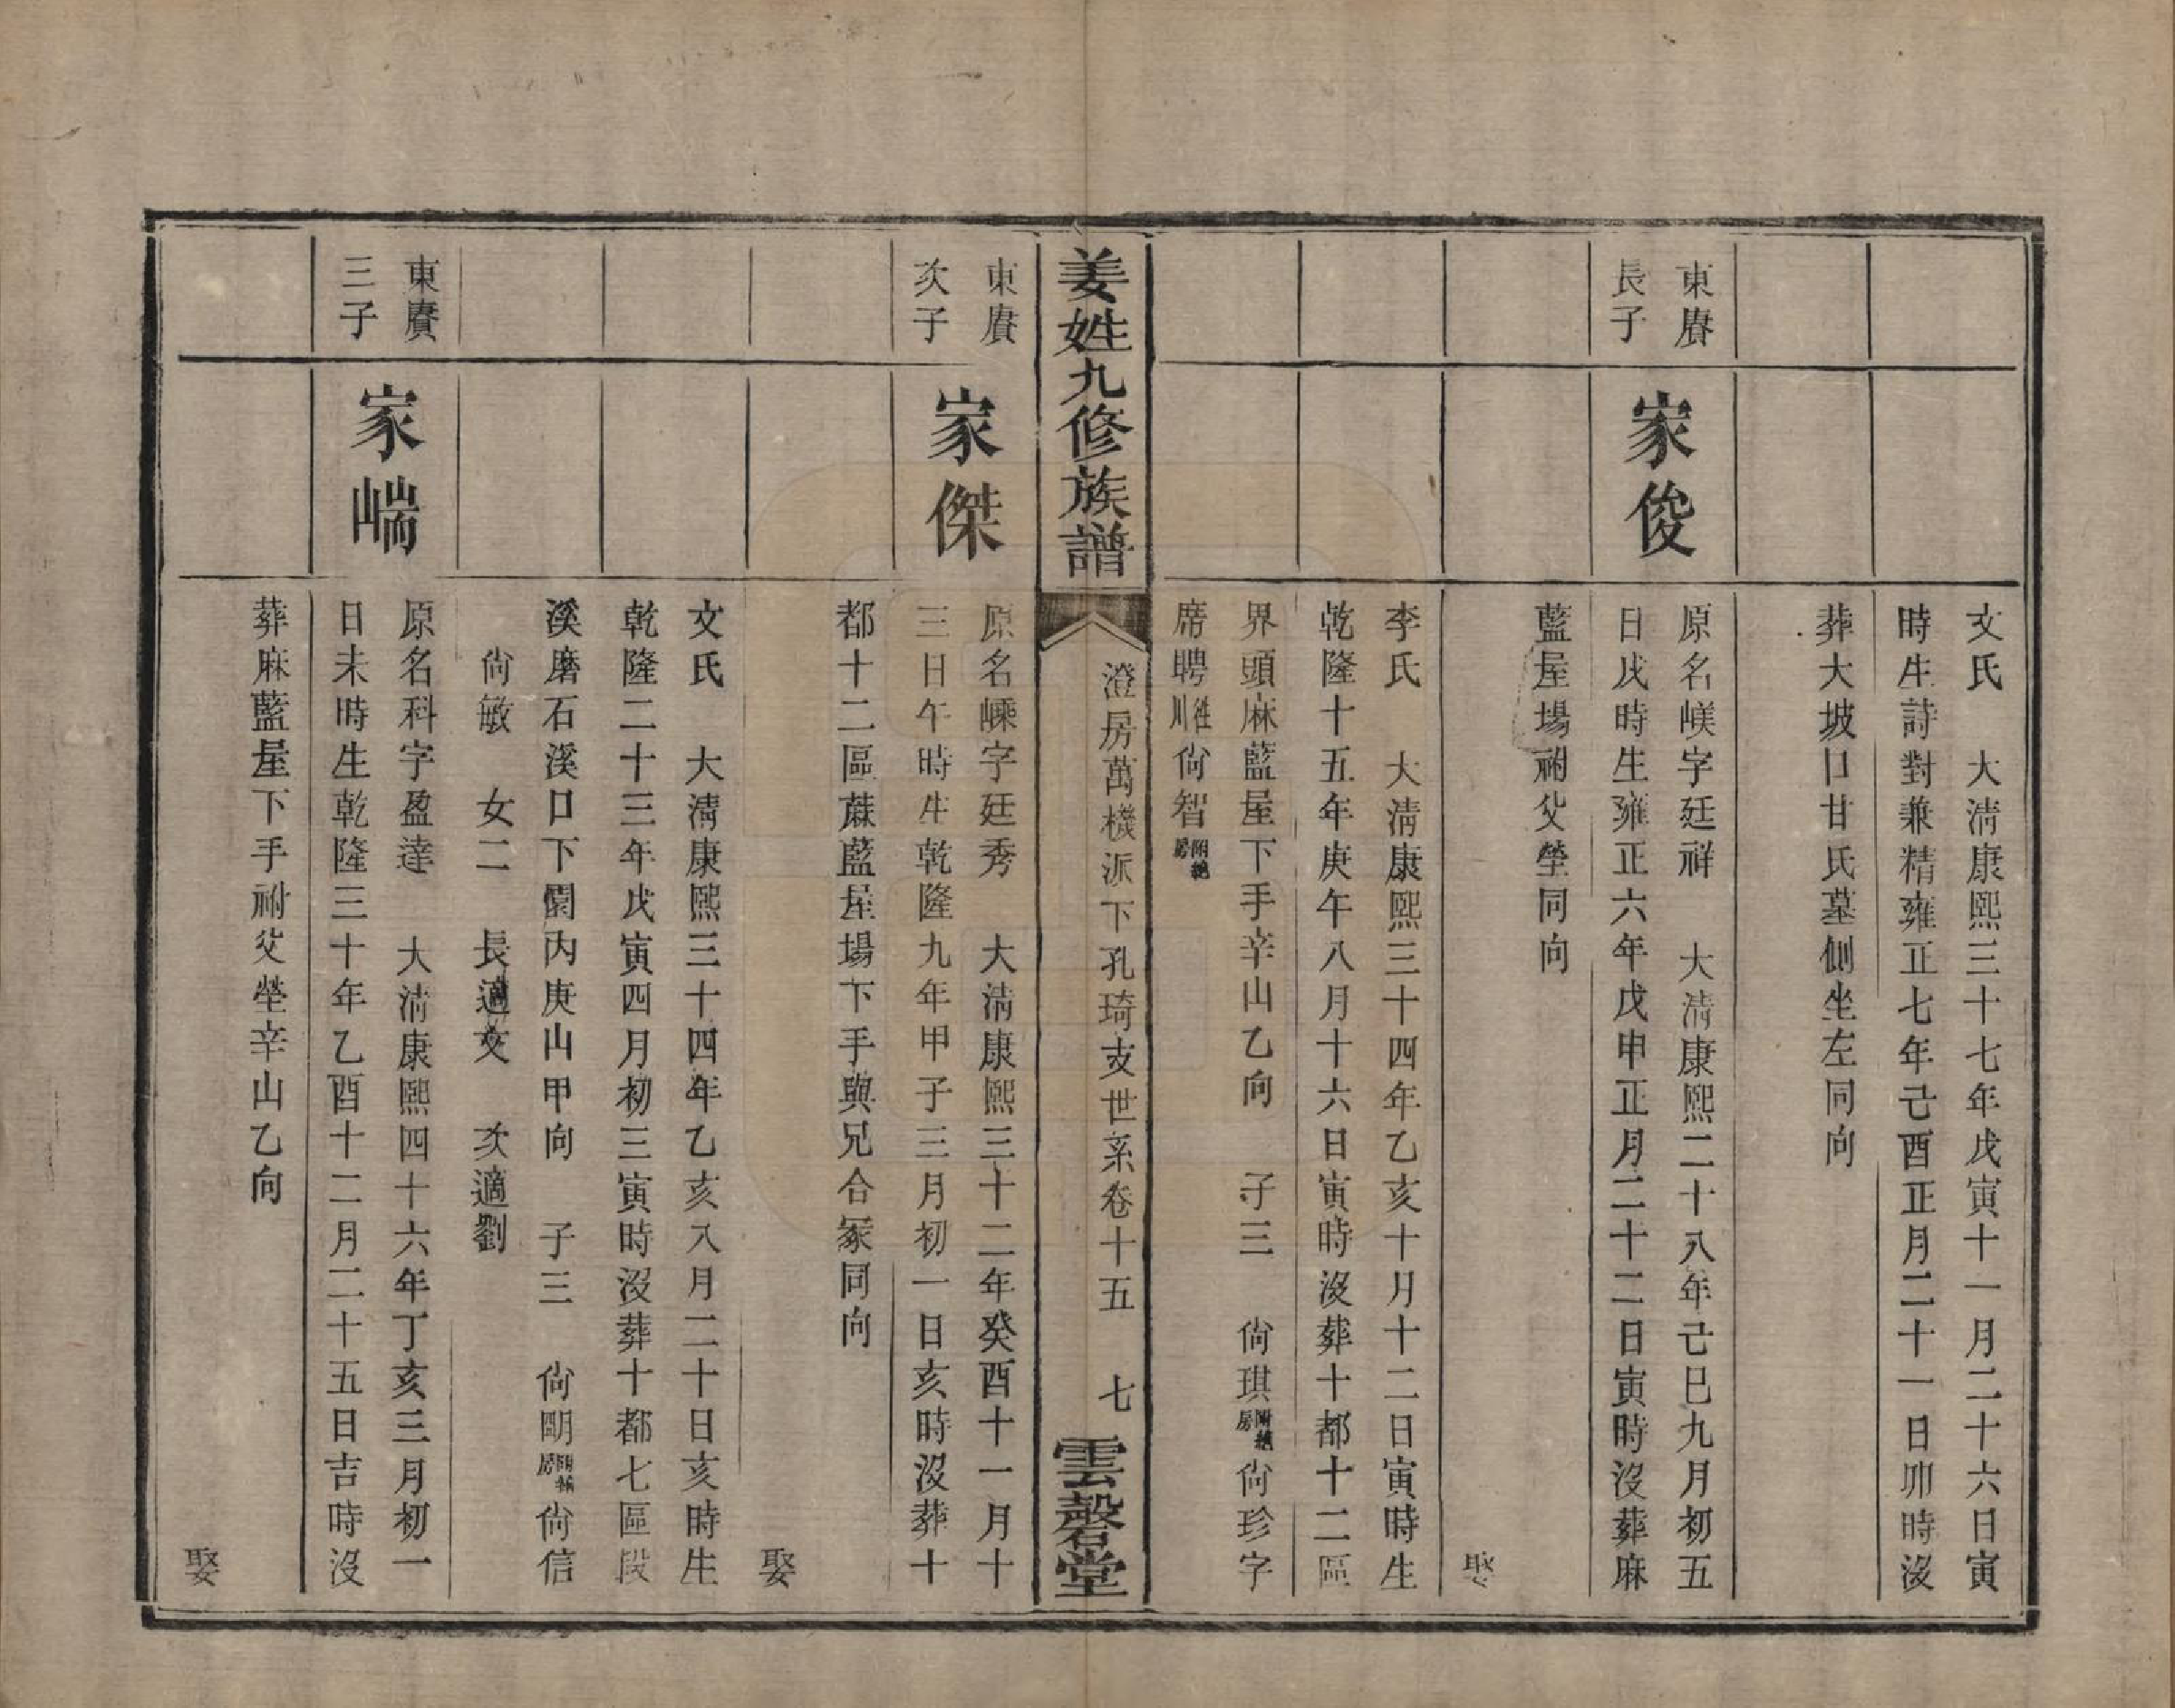 文氏 大淸康熙三十七年戊寅十一月二十六日寅
時生詩對兼精雍正七年己酉正月二十一日卯時沒
葬大坡口甘氏墓側坐左同向
東賡
長子
家俊
原名嵄字廷祥 大淸康熙二十八年己巳九月初五
日戌時生雍正六年戊申正月二十二日寅時沒葬麻
藍屋場祔父塋同向
娶
李氏 大淸康熙三十四年乙亥十月十二日寅時生
乾隆十五年庚午八月十六日寅時沒葬十都十二區
界頭麻藍屋下手辛山乙向 子三 尙琪附總房尙珍字
席聘徃川尙智附總房
姜姓九修族譜
澄房萬機派下孔琦支世系卷十五 七
雲磬堂
東賡
次子
家傑
原名嵊字廷秀 大淸康熙三十二年癸酉十一月十
三日午時生乾隆九年甲子三月初一日亥時沒葬十
都十二區蔴藍屋場下手與兄合冢同向
娶
文氏 大淸康熙三十四年乙亥八月二十日亥時生
乾隆二十三年戊寅四月初三寅時沒葬十都七區段
溪磨石溪口下園內庚山甲向 子三 尙明附總房尙信
尙敏 女二 長適文 次適劉
東賡
三子
家喘
原名科字盈達 大淸康熙四十六年丁亥三月初一
日未時生乾隆三十年乙酉十二月二十五日吉時沒
葬麻藍屋下手祔父塋辛山乙向
娶